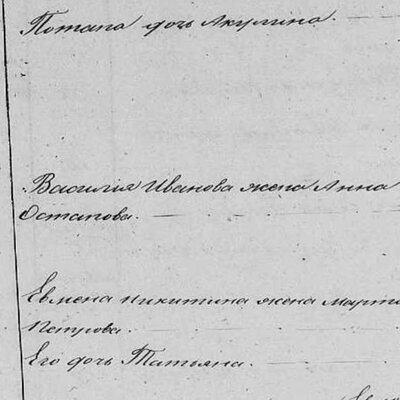 Потапа дочь Акулина.
Василия Иванова жена Анна
Остапова.
Евмена Никитина жена Марти
Петрова.
Его дочь Татьяна.